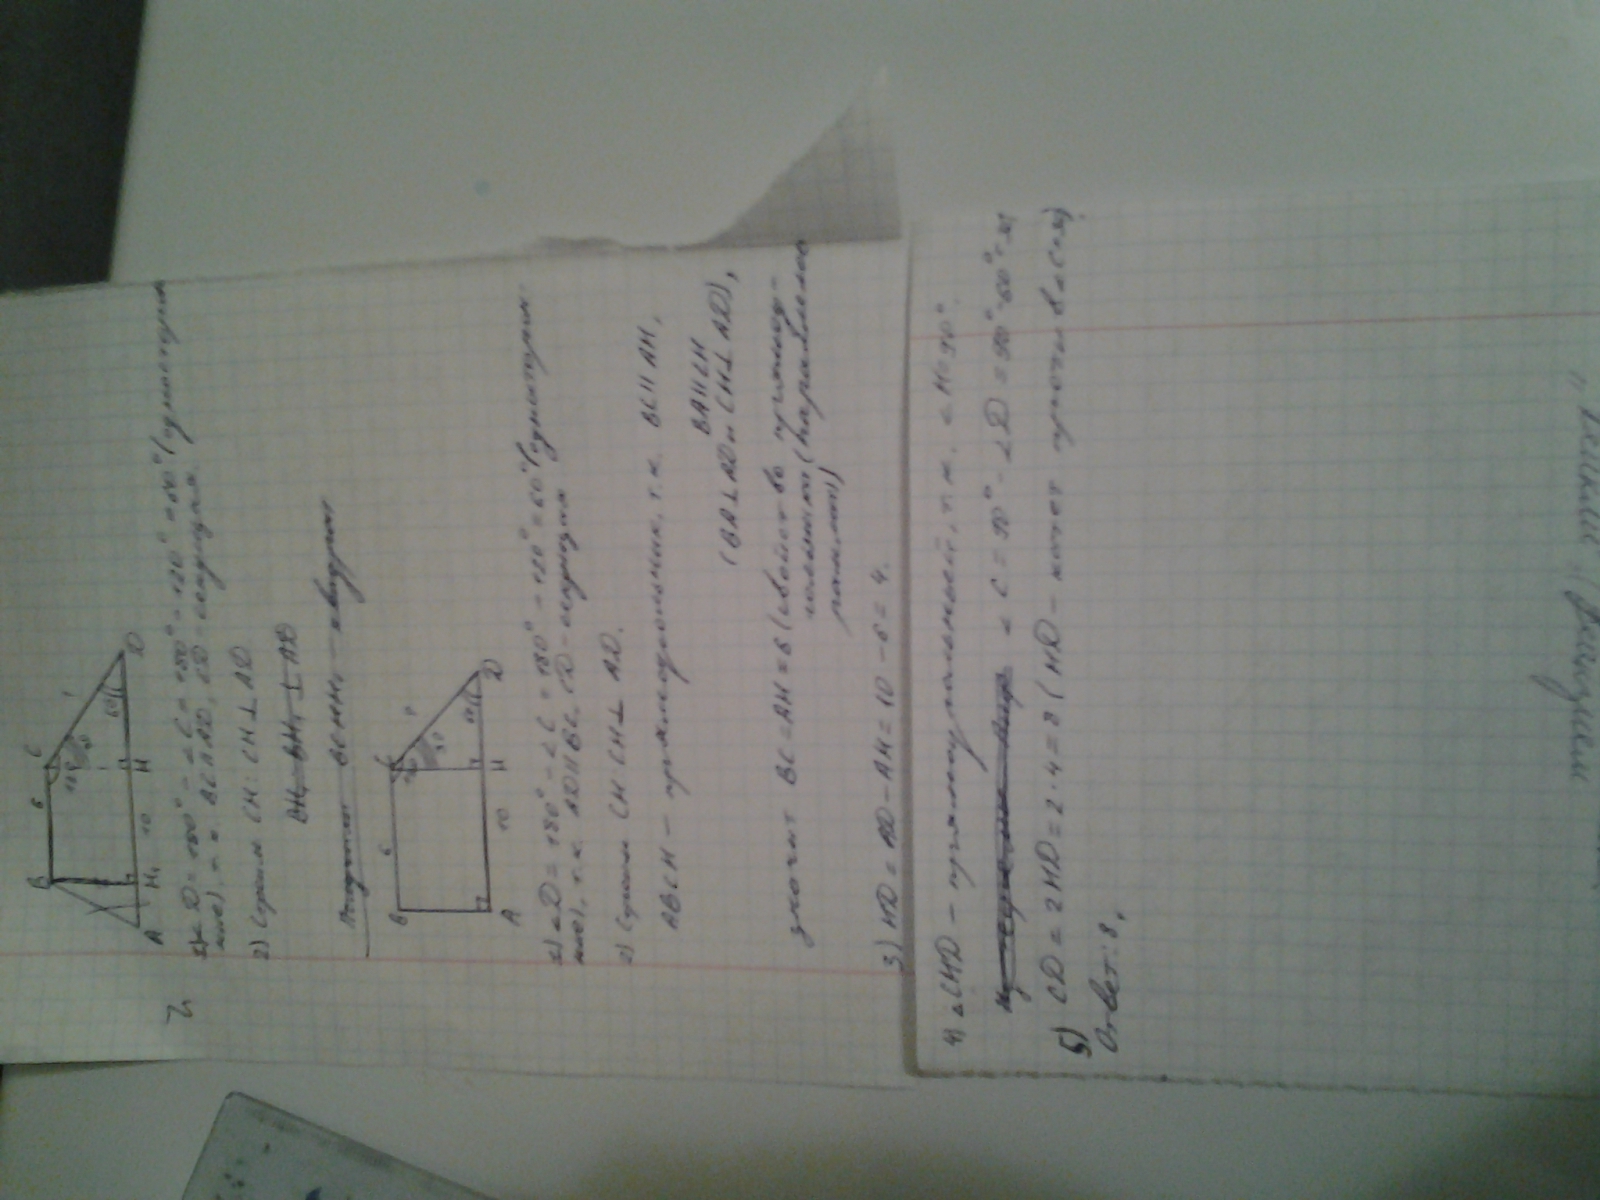 B 6 C
120°
60°
A H₁ 10 H D
1) ∠D = 180° - ∠C = 180° - 120° = 60° (односторон
ние), т.к. BC∥AD, CD - секущая
2) Строим CH: CH⊥AD
BH₁⊥AD
BCHH₁ - квадрат
B 6 C
A 10 H D
1) ∠D = 180° - ∠C = 180° - 120° = 60° (односторон-
ние), т.к. AD∥BC, CD - секущая
2) Строим CH: CH⊥AD.
ABCH - прямоугольник, т.к. BC∥AH,
BA∥CH
(BA⊥AD и CH⊥AD),
значит BC = AH = 6 (свойство прямоуг-
ольника (параллелог
рамма))
3) HD = AD - AH = 10 - 6 = 4.
4) △CHD - прямоугольный, т.к. ∠H=90°.
∠C = 90° - ∠D = 90° - 60° = 30°
5) CD = 2HD = 2·4 = 8 (HD - катет против ∠C=30°)
Ответ: 8.